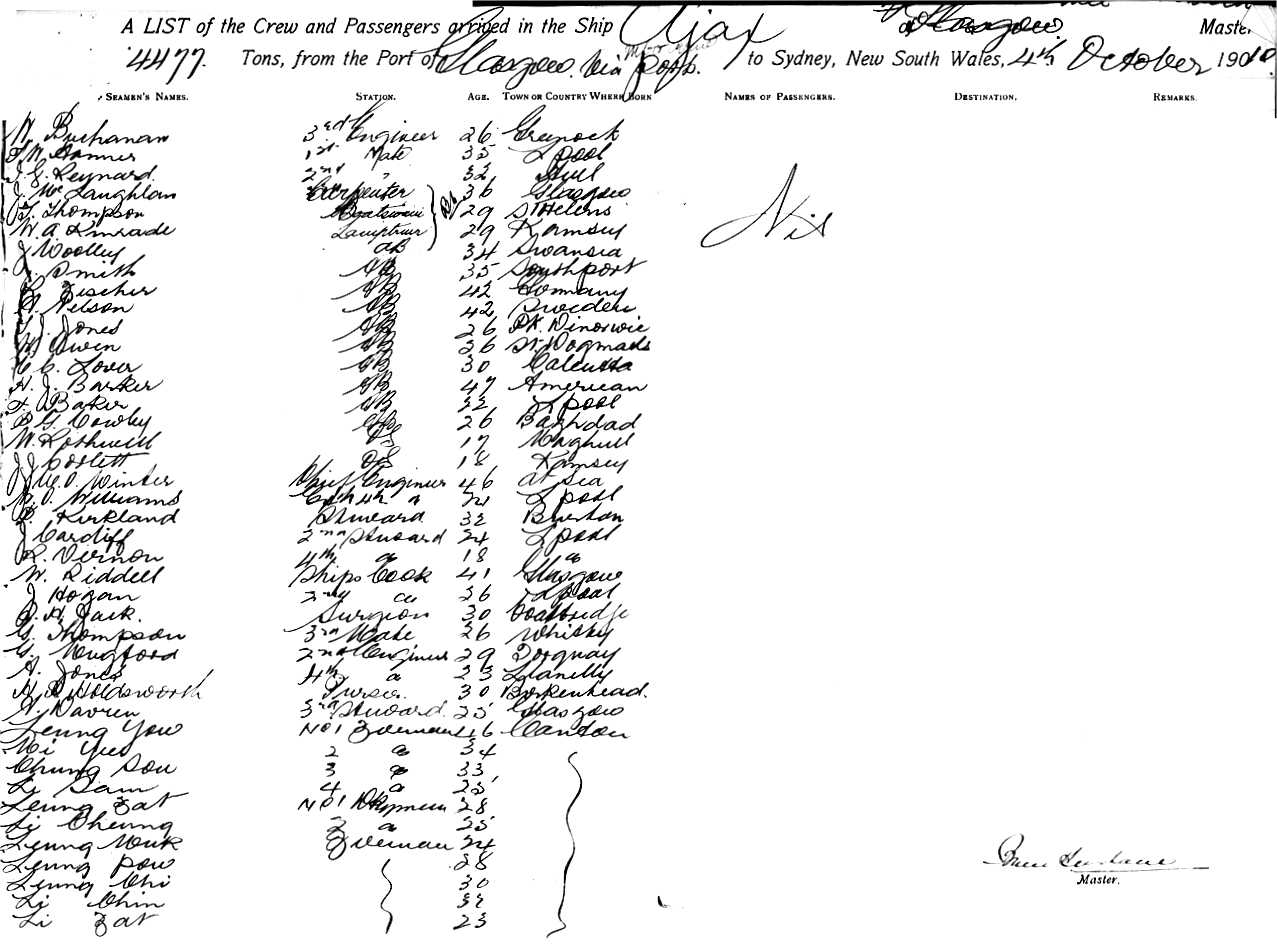 A LIST of the Crew and Passengers arrived in the Ship Ajax of Glasgow Master
4477. Tons, from the Port of Glasgow via L'pool. to Sydney, New South Wales, 4th October 1910
SEAMEN'S NAMES. STATION. AGE. TOWN OR COUNTRY WHERE BORN NAMES OF PASSENGERS. DESTINATION. REMARKS.
W. Buchanan 3rd Engineer 26 Greenock
1st Mate 35 L'pool
J. S. Reynard 2nd " 32 Hull
J. McLaughlan Carpenter 36 Glasgow
Thompson Boatswain 29 St Helens
W. A. Kinrade Lamptrimr 29 Ramsey
Nil
J Woolley AB 34 Swansea
J. Smith AB 35 Southport
Fischer AB 42 Germany
Nelson AB 42 Sweden
Jones AB 26 Pt. Dinorwic
Owen AB 26 St Dogmaels
C. Lover AB 30 Calcutta
H. J. Barker AB 47 American
Baker AB L'pool
B G Cowley 26 Baghdad
W. Rothwell OS 17 Maghull
J. J. Corlett OS 18 Ramsey
Winter Chief Engineer 46 at sea
Williams L'pool
Kirkland Steward 32 Buxton
J Cardiff 2nd Steward 24 L'pool
R. Vernon 4th " 18 "
W. Riddell Ships Cook 41 Glasgow
J Hogan 2nd " 26 L'pool
Jack. Surgeon 30 Coatbridge
G. Thompson 3rd Mate 26 Whitby
G. Mugford 2nd Engineer 29 Torquay
A. Jones 4th " 23 Llanelly
Holdsworth Purser 30 Birkenhead.
Warren 3rd Steward. 25 Glasgow
Leung You No 1 Fireman 46 Canton
Yue 2 " 34
Chung Sou 3 " 33
Li Sam 4 " 25
Leung Fat No 1 28
Li Cheung 2 " 25
Leung Muk Fireman 24
Leung Pow 28
Leung Chi 30
Li Chin 32
Li Fat 23
Master.